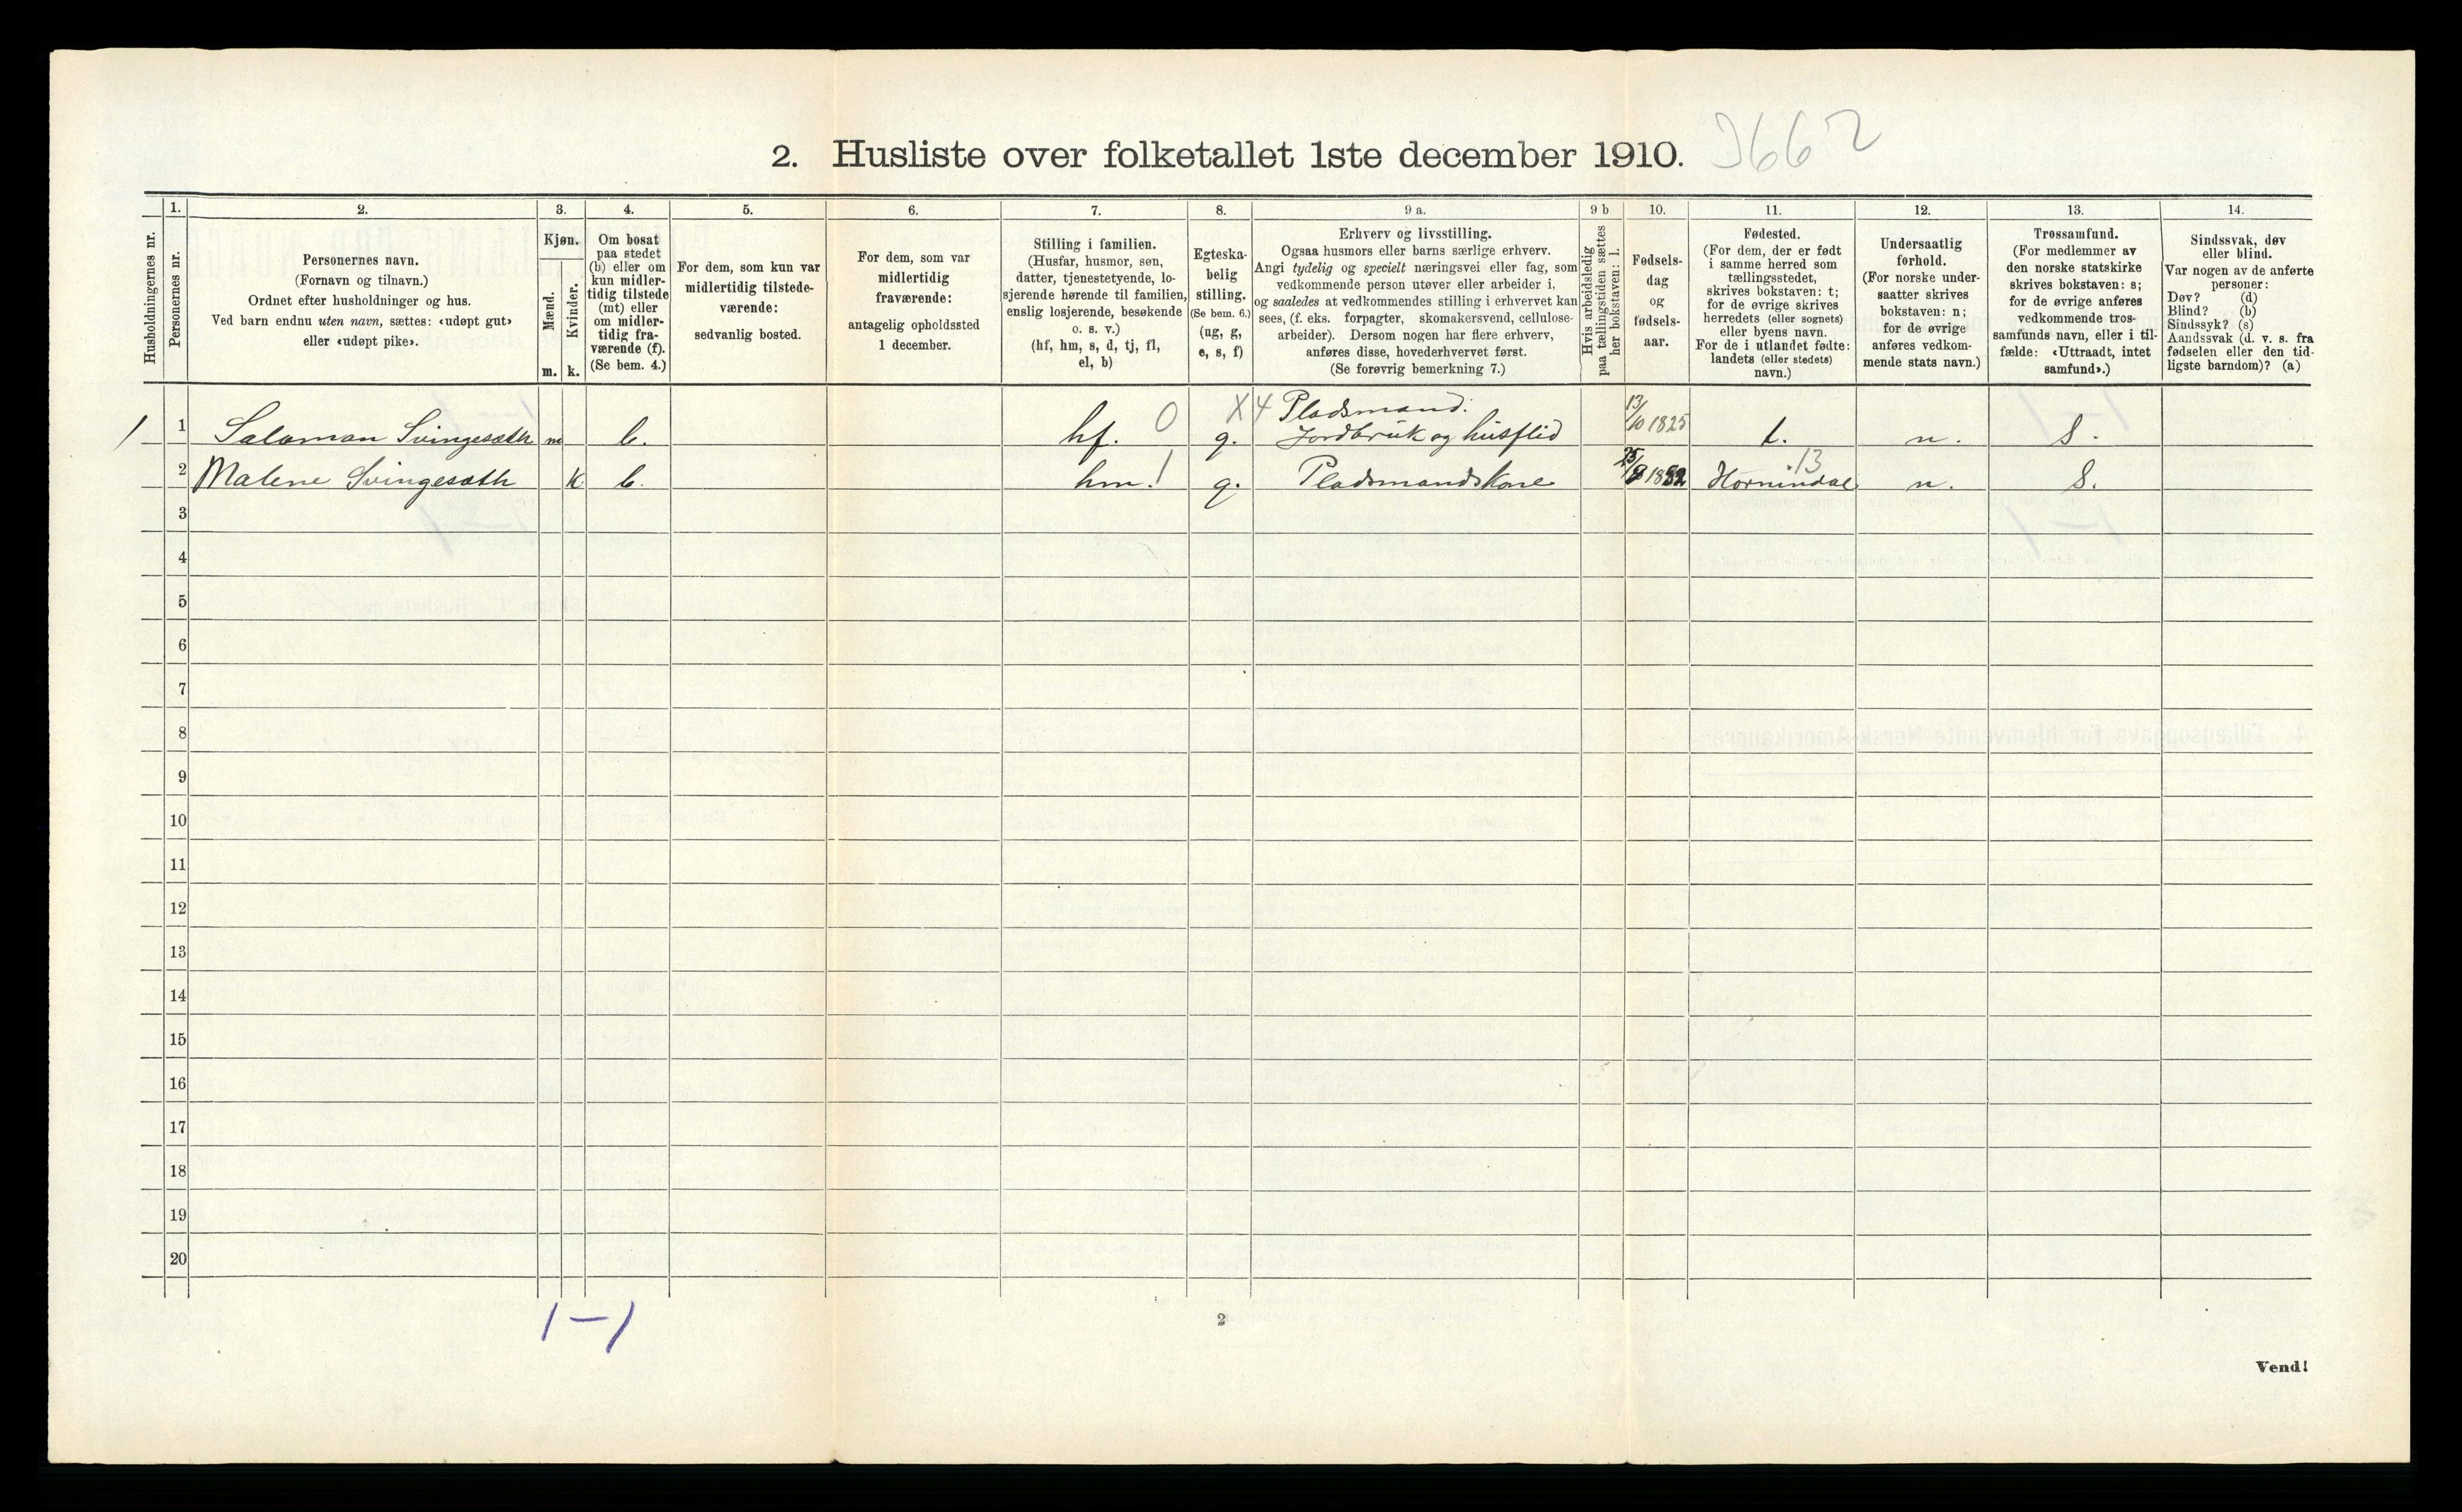 2. Husliste over folketallet 1ste december 1910. 3662
Husholdningernes nr.
1.
Personernes nr.
2.
Personernes navn.
(Fornavn og tilnavn.)
Ordnet efter husholdninger og hus.
Ved barn endnu uten navn, sættes: «udøpt gut»
eller «udøpt pike».
3.
Kjøn.
Mænd.
Kvinder.
m. k.
4.
Om bosat
paa stedet
(b) eller om
kun midler-
tidig tilstede
(mt) eller
om midler-
tidig fra-
værende (f).
(Se bem. 4.)
5.
For dem, som kun var
midlertidig tilstede-
værende:
sedvanlig bosted.
6.
For dem, som var
midlertidig
fraværende:
antagelig opholdssted
1 december.
7.
Stilling i familien.
(Husfar, husmor, søn,
datter, tjenestetyende, lo-
sjerende hørende til familien,
enslig losjerende, besøkende
o. s. v.)
(hf, hm, s, d, tj, fl,
el, b)
8.
Egteska-
belig
stilling.
(Se bem. 6.)
(ug, g,
e, s, f)
9 a.
Erhverv og livsstilling.
Ogsaa husmors eller barns særlige erhverv.
Angi tydelig og specielt næringsvei eller fag, som
vedkommende person utøver eller arbeider i,
og saaledes at vedkommendes stilling i erhvervet kan
sees, (f. eks. forpagter, skomakersvend, cellulose-
arbeider). Dersom nogen har flere erhverv,
anføres disse, hovederhvervet først.
(Se forøvrig bemerkning 7.)
9 b
Hvis arbeidsledig
paa tællingstiden sættes
her bokstaven: l.
10.
Fødsels-
dag
og
fødsels-
aar.
11.
Fødested.
(For dem, der er født
i samme herred som
tællingsstedet,
skrives bokstaven: t;
for de øvrige skrives
herredets (eller sognets)
eller byens navn.
For de i utlandet fødte:
landets (eller stedets)
navn.)
12.
Undersaatlig
forhold.
(For norske under-
saatter skrives
bokstaven: n;
for de øvrige
anføres vedkom-
mende stats navn.)
13.
Trossamfund.
(For medlemmer av
den norske statskirke
skrives bokstaven: s;
for de øvrige anføres
vedkommende tros-
samfunds navn, eller i til-
fælde: «Uttraadt, intet
samfund».)
14.
Sindssvak, døv
eller blind.
Var nogen av de anførte
personer:
Døv? (d)
Blind? (b)
Sindssyk? (s)
Aandssvak (d. v. s. fra
fødselen eller den tid-
ligste barndom)? (a)
1 1 Salaman Svingesæth m b. hf. 0 g. X4 Pladsmand. Jordbruk og husflid 13/10 1825 t. n. S.
2 Malene Svingesæth k b. hm. 1 g. Pladsmandskone Hornindal 13 n. S.
3
4
5
6
7
8
9
10
11
12
13
14
15
16
17
18
19
20
1—1
2
Vend!